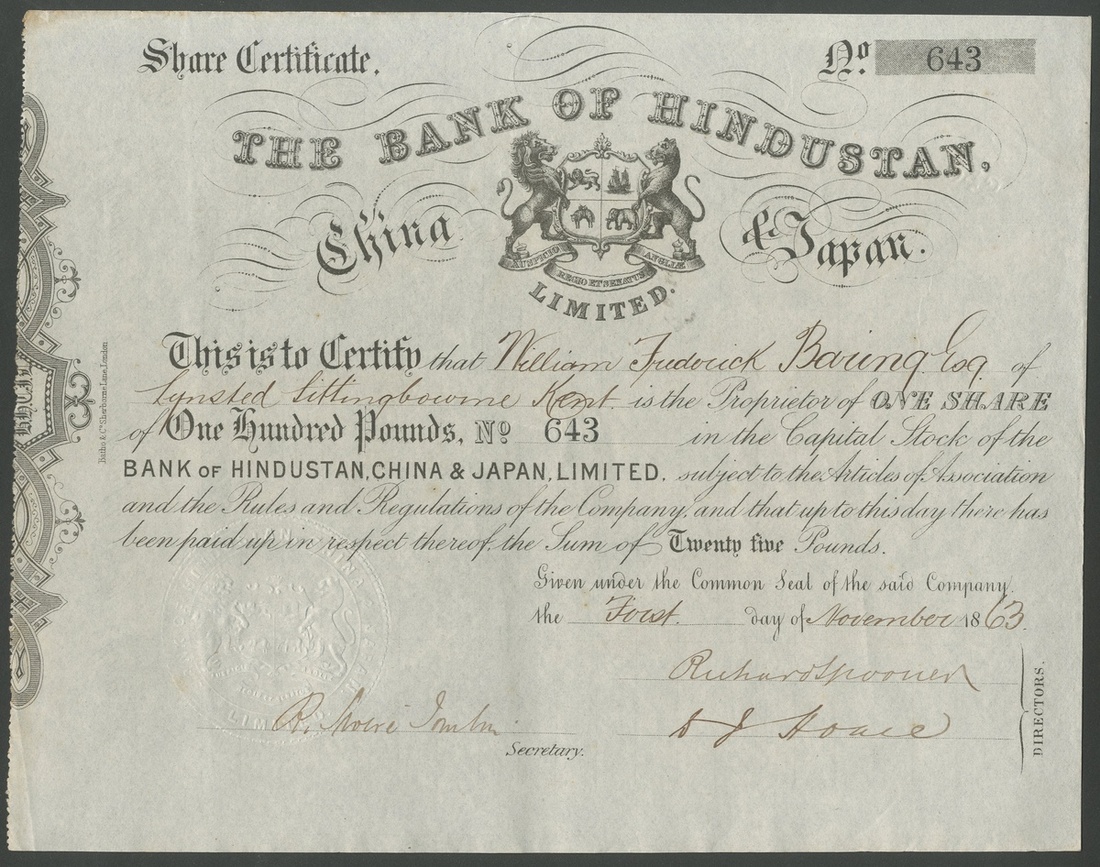 Share Certificate.
No. 643
THE BANK OF HINDUSTAN,
China & Japan.
AUSPICIO REGIS ET SENATUS ANGLIÆ
LIMITED.
This is to Certify that William Frederick Baring Esq. of
Lynsted Sittingbourne Kent. is the Proprietor of ONE SHARE
of One Hundred Pounds, No 643 in the Capital Stock of the
BANK OF HINDUSTAN, CHINA & JAPAN, LIMITED. subject to the Articles of Association
and the Rules and Regulations of the Company, and that up to this day there has
been paid up in respect thereof, the Sum of Twenty five Pounds.
Given under the Common Seal of the said Company.
the First. day of November 1863.
Richard Spooner
DIRECTORS.
Secretary.
LIMITED
Batho & Co. Sherborne Lane, London